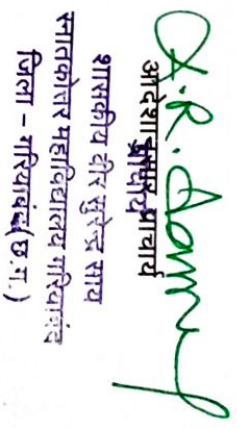 आदेशानुसार प्राचार्य
प्राचार्य
शासकीय वीर सुरेन्द्र साय
स्नातकोत्तर महाविद्यालय गरियाबंद
जिला - गरियाबंद (छ.ग.)